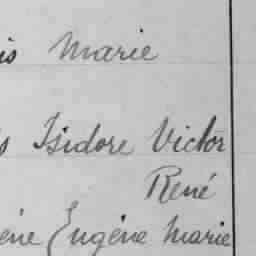 is Marie
s Isidore Victor
René
ène Eugène Marie